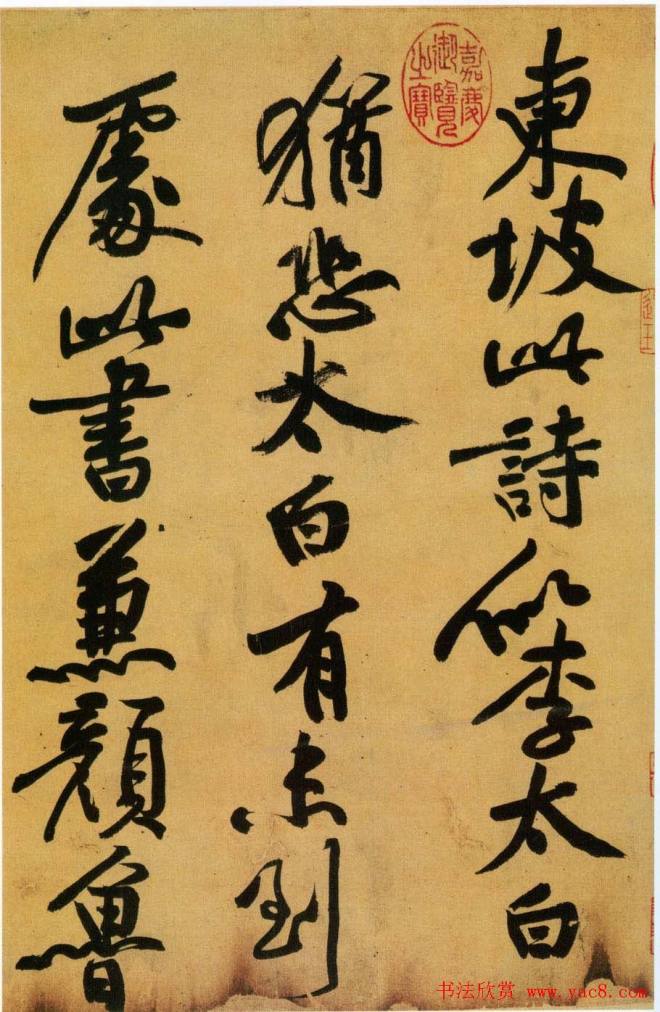 東坡此詩似李太白
猶恐太白有未到
處此書兼顏魯
嘉慶御覽之寶
书法欣赏 www.yac8.com